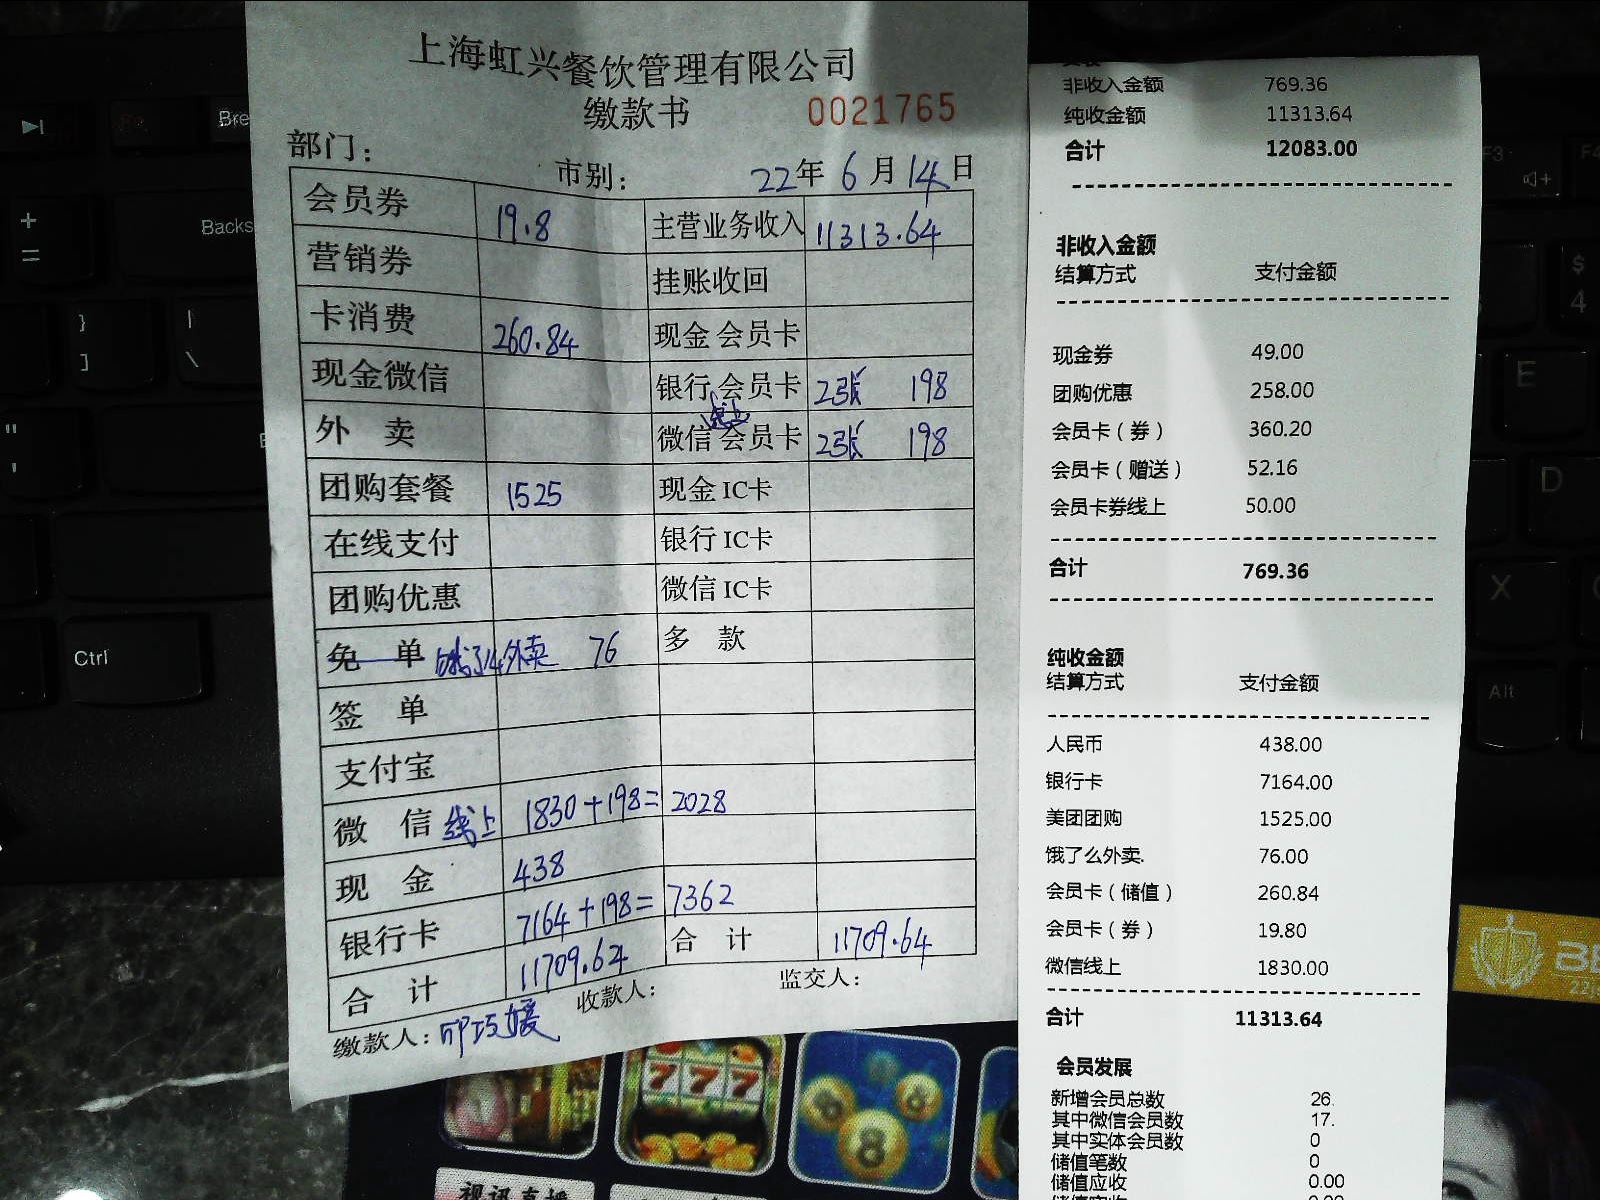 上海虹兴餐饮管理有限公司
缴款书 0021765
部门： 市别： 22年 6月 14日
会员券 19.8 主营业务收入 11313.64
营销券 挂账收回
卡消费 260.84 现金 会员卡
现金微信 银行 会员卡 2张 198
外 卖 微信 线上 会员卡 2张 198
团购套餐 1525 现金 IC卡
在线支付 银行 IC卡
团购优惠 微信 IC卡
免 单 饿了么外卖 76 多 款
签 单
支付宝
微 信 线上 1830+198= 2028
现 金 438
银行卡 7164+198= 7362
合 计 11709.64 合 计 11709.64
缴款人： 收款人： 监交人：
非收入金额 769.36
纯收金额 11313.64
合计 12083.00
非收入金额
结算方式 支付金额
现金券 49.00
团购优惠 258.00
会员卡（券） 360.20
会员卡（赠送） 52.16
会员卡券线上 50.00
合计 769.36
纯收金额
结算方式 支付金额
人民币 438.00
银行卡 7164.00
美团团购 1525.00
饿了么外卖. 76.00
会员卡（储值） 260.84
会员卡（券） 19.80
微信线上 1830.00
合计 11313.64
会员发展
新增会员总数 26.
其中微信会员数 17.
其中实体会员数 0
储值笔数 0
储值应收 0.00
Backs
Ctrl
Bre
E
D
X
Alt
$
4
777
8
视讯直播